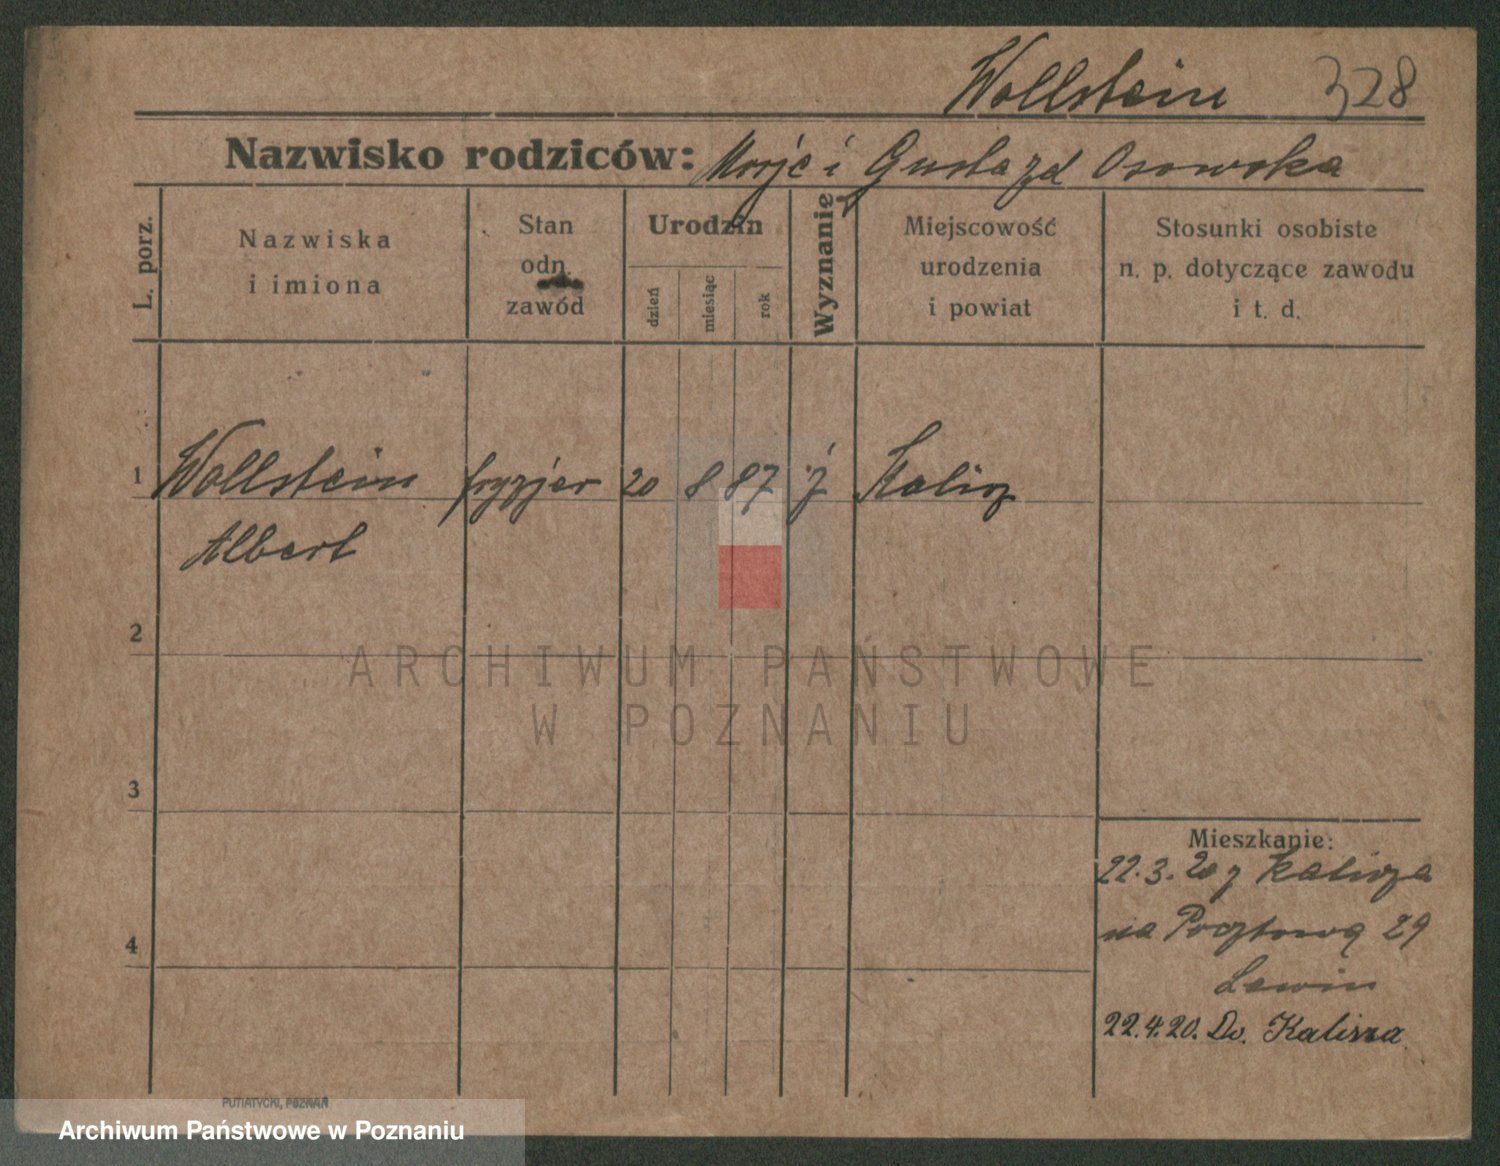 Wollstein 328
Nazwisko rodziców: i Gusta zd Osowska
L. porz.
Nazwiska
i imiona
Stan
odn.
zawód
Urodzin
dzień
miesiąc
rok
Wyznanie
Miejscowość
urodzenia
i powiat
Stosunki osobiste
n. p. dotyczące zawodu
i t. d.
1 Wollstein fryzjer 20 8 87 j Kalisz
Albert
2
3
4
Mieszkanie:
22.3.20 z Kalisza
na Pocztową 29
Lewin
22.4.20. Do. Kalisza.
PUTIATYCKI, POZNAŃ
ARCHIWUM PAŃSTWOWE
W POZNANIU
Archiwum Państwowe w Poznaniu